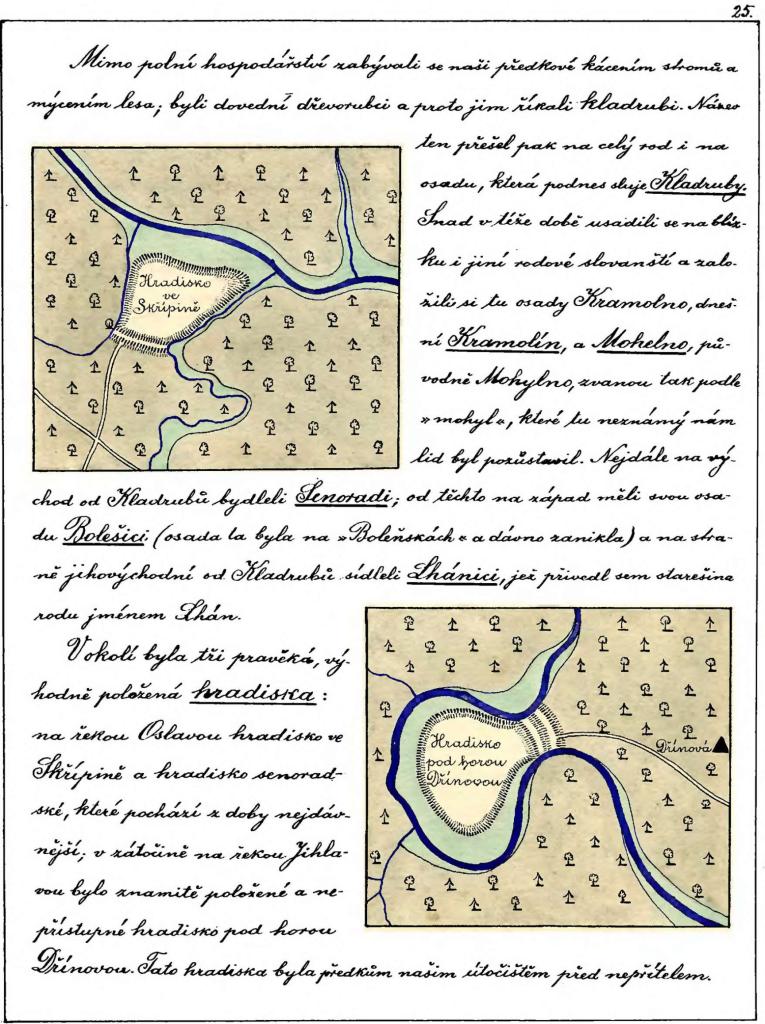 25.
Mimo polní hospodářství zabývali se naši předkové kácením stromů a
mýcením lesa; byli dovední dřevorubci a proto jim říkali kladrubi. Název
ten přešel pak na celý rod i na
osadu, která podnes sluje Kladruby.
Snad v téže době usadili se na blíz-
ku i jiní rodové slovanští a zalo-
žili si tu osady Kramolno, dneš-
ní Kramolín, a Mohelno, pů-
vodně Mohylno, zvanou tak podle
»mohyl«, které tu neznámý nám
lid byl pozůstavil. Nejdále na vý-
Hradisko
ve
Skřípině
chod od Kladrubů bydleli Senoradi; od těchto na západ měli svou osa-
du Bolešici (osada ta byla na »Boleňskách« a dávno zanikla) a na stra-
ně jihovýchodní od Kladrubů sídleli Lhánici, jež přivedl sem starešina
rodu jménem Lhán.
V okolí byla tři pravěká, vý-
hodně položená hradiska:
na řekou Oslavou hradisko ve
Skřípině a hradisko senorad-
ské, které pochází z doby nejdáv-
nější; v zátočině na řekou Jihla-
vou bylo znamitě položené a ne-
přístupné hradisko pod horou
Dřínovou. Tato hradiska byla předkům našim útočištěm před nepřítelem.
Hradisko
pod horou
Dřínovou
Dřínová